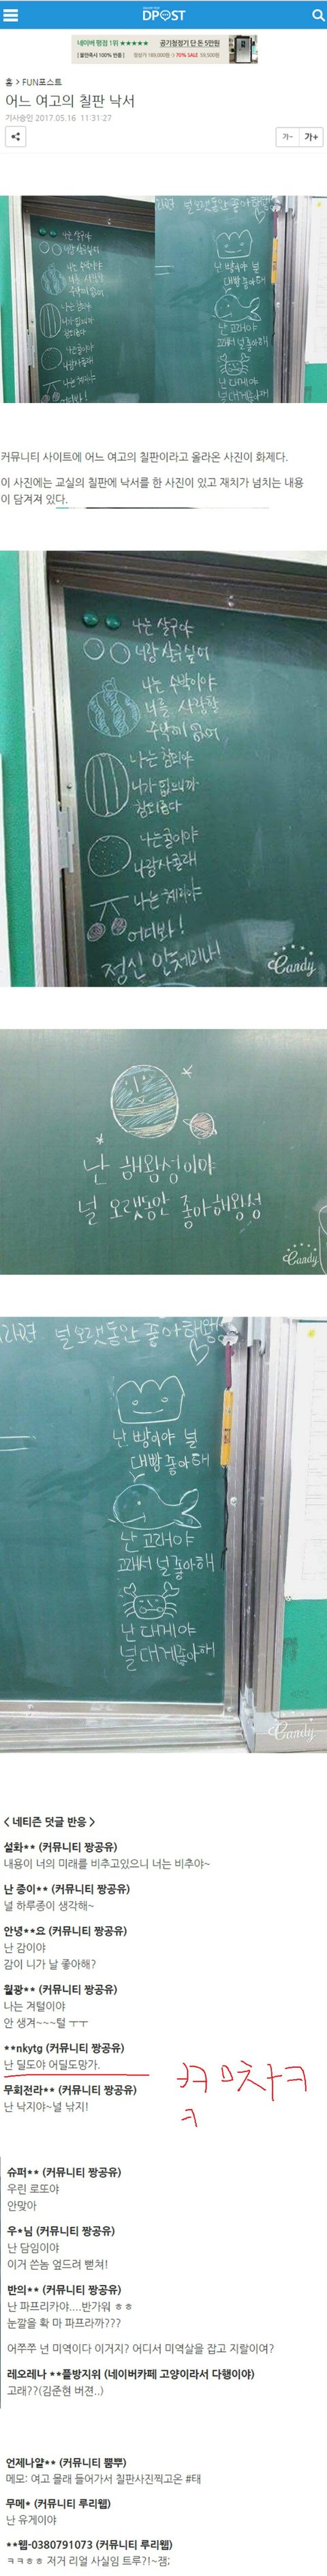 DPOST
네이버 평점 1위 ★★★★★ 공기청정기 단 돈 5만원
[ 불만족시 100% 반품 ] 정상가 189,000원 -> 70% SALE 59,500원
홈 > FUN포스트
어느 여고의 칠판 낙서
기사승인 2017.05.16 11:31:27
가- 가+
나는 살구야
너랑 살구싶어
나는 수박이야
너를 사랑할
수박에 없어
나는 참외야
니가 없으니까
참외롭다
나는 귤이야
나랑사귤래
나는 체리야
어디봐!
널 오랫동안 좋아해왕성
난 빵이야 널
대빵 좋아해
난 고래야
고래서 널 좋아해
난 대게야
널 대게좋아해
커뮤니티 사이트에 어느 여고의 칠판이라고 올라온 사진이 화제다.
이 사진에는 교실의 칠판에 낙서를 한 사진이 있고 재치가 넘치는 내용
이 담겨져 있다.
나는 살구야
너랑 살구싶어
나는 수박이야
너를 사랑할
수박에 없어
나는 참외야
니가 없으니까
참외롭다
나는귤이야
나랑사귤래
나는 체리야
어디봐!
정신 안체리나!
Candy
난 해왕성이야
널 오랫동안 좋아해왕성
Candy
널오랫동안좋아해왕성
난 빵이야 널
대빵좋아해
난고래야
고래서 널좋아해
난 대게야
널 대게좋아해
Candy
< 네티즌 덧글 반응 >
설화** (커뮤니티 짱공유)
내용이 너의 미래를 비추고있으니 너는 비추야~
난 종이** (커뮤니티 짱공유)
널 하루종이 생각해~
안녕**요 (커뮤니티 짱공유)
난 감이야
감이 니가 날 좋아해?
월광** (커뮤니티 짱공유)
나는 겨털이야
안 생겨~~~털 ㅜㅜ
**nkytg (커뮤니티 짱공유)
난 딜도야 어딜도망가.
무회전라** (커뮤니티 짱공유)
난 낙지야~널 낚지!
슈퍼** (커뮤니티 짱공유)
우린 로또야
안맞아
우*님 (커뮤니티 짱공유)
난 담임이야
이거 쓴놈 엎드려 뻗쳐!
반의** (커뮤니티 짱공유)
난 파프리카야....반가워 ㅎㅎ
눈깔을 확 마 파프라까???
어쭈쭈 넌 미역이다 이거지? 어디서 미역살을 잡고 지랄이여?
레오레나 **풀방지위 (네이버카페 고양이라서 다행이야)
고래??(김준현 버젼..)
언제나얄** (커뮤니티 뽐뿌)
메모: 여고 몰래 들어가서 칠판사진찍고온 #태
무메* (커뮤니티 루리웹)
난 유게이야
**웹-0380791073 (커뮤니티 루리웹)
ㅋㅋㅎㅎ 저거 리얼 사실임 트루?!~잼;